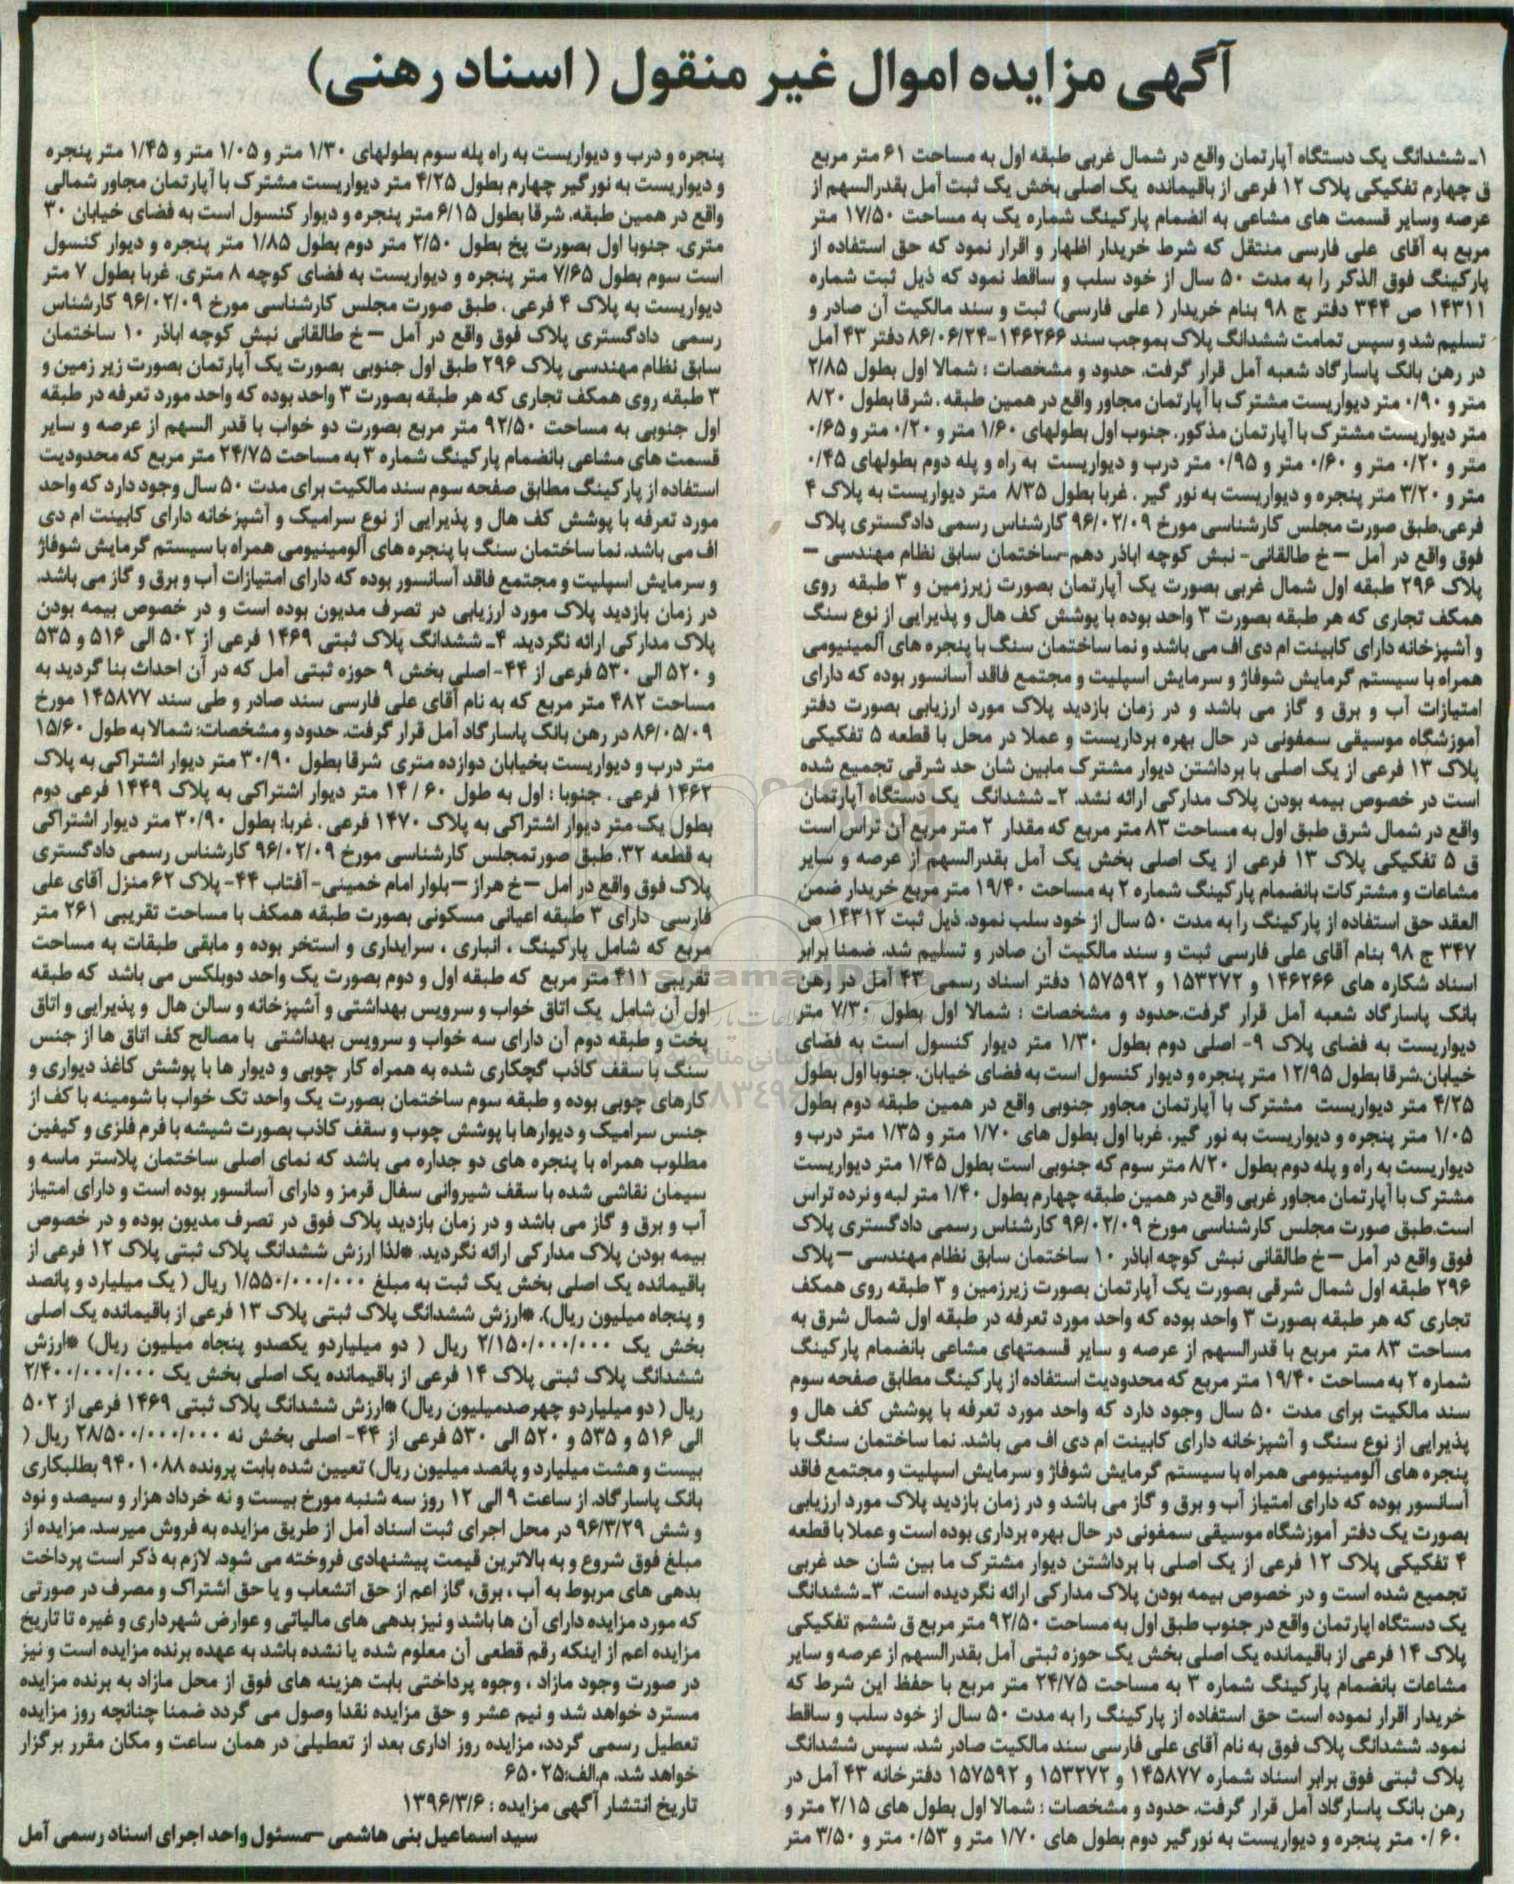 آگهی مزایده اموال غیر منقول (اسناد رهنی)
۱ـ ششدانگ یک دستگاه آپارتمان واقع در شمال غربی طبقه اول به مساحت ۶۱ متر مربع
ق چهارم تفکیکی پلاک ۱۲ فرعی از باقیمانده یک اصلی بخش یک ثبت آمل بقدرالسهم از
عرصه وسایر قسمت های مشاعی به انضمام پارکینگ شماره یک به مساحت ۱۷/۵۰ متر
مربع به آقای علی فارسی منتقل که شرط خریدار اظهار و اقرار نمود که حق استفاده از
پارکینگ فوق الذکر را به مدت ۵۰ سال از خود سلب و ساقط نمود که ذیل ثبت شماره
۱۴۳۱۱ ص ۳۴۴ دفتر ج ۹۸ بنام خریدار ( علی فارسی) ثبت و سند مالکیت آن صادر و
تسلیم شد و سپس تمامت ششدانگ پلاک بموجب سند ۱۴۶۲۶۶-۸۶/۰۶/۲۴ دفتر ۴۳ آمل
در رهن بانک پاسارگاد شعبه آمل قرار گرفت. حدود و مشخصات : شمالا اول بطول ۲/۸۵
متر و ۰/۹۰ متر دیواریست مشترک با آپارتمان مجاور واقع در همین طبقه . شرقا بطول ۸/۲۰
متر دیواریست مشترک با آپارتمان مذکور. جنوب اول بطولهای ۱/۶۰ متر و ۰/۲۰ متر و ۰/۶۵
متر و ۰/۲۰ متر و ۰/۶۰ متر و ۰/۹۵ متر درب و دیواریست به راه و پله دوم بطولهای ۰/۴۵
متر و ۳/۲۰ متر پنجره و دیواریست به نور گیر . غربا بطول ۸/۳۵ متر دیواریست به پلاک ۴
فرعی.طبق صورت مجلس کارشناسی مورخ ۹۶/۰۲/۰۹ کارشناس رسمی دادگستری پلاک
فوق واقع در آمل – خ طالقانی- نبش کوچه اباذر دهم-ساختمان سابق نظام مهندسی –
پلاک ۲۹۶ طبقه اول شمال غربی بصورت یک آپارتمان بصورت زیرزمین و ۳ طبقه روی
همکف تجاری که هر طبقه بصورت ۳ واحد بوده با پوشش کف هال و پذیرایی از نوع سنگ
و آشپزخانه دارای کابینت ام دی اف می باشد و نما ساختمان سنگ با پنجره های آلمینیومی
همراه با سیستم گرمایش شوفاژ و سرمایش اسپلیت و مجتمع فاقد آسانسور بوده که دارای
امتیازات آب و برق و گاز می باشد و در زمان بازدید پلاک مورد ارزیابی بصورت دفتر
آموزشگاه موسیقی سمفونی در حال بهره برداریست و عملا در محل با قطعه ۵ تفکیکی
پلاک ۱۳ فرعی از یک اصلی با برداشتن دیوار مشترک مابین شان حد شرقی تجمیع شده
است در خصوص بیمه بودن پلاک مدارکی ارائه نشد. ۲ـ ششدانگ یک دستگاه آپارتمان
واقع در شمال شرق طبق اول به مساحت ۸۳ متر مربع که مقدار ۲ متر مربع آن تراس است
ق ۵ تفکیکی پلاک ۱۳ فرعی از یک اصلی بخش یک آمل بقدرالسهم از عرصه و سایر
مشاعات و مشترکات بانضمام پارکینگ شماره ۲ به مساحت ۱۹/۴۰ متر مربع خریدار ضمن
العقد حق استفاده از پارکینگ را به مدت ۵۰ سال از خود سلب نمود. ذیل ثبت ۱۴۳۱۲ ص
۳۴۷ ج ۹۸ بنام آقای علی فارسی ثبت و سند مالکیت آن صادر و تسلیم شد. ضمنا برابر
اسناد شکاره های ۱۴۶۲۶۶ و ۱۵۳۲۷۲ و ۱۵۷۵۹۲ دفتر اسناد رسمی ۴۳ آمل در رهن
بانک پاسارگاد شعبه آمل قرار گرفت.حدود و مشخصات : شمالا اول بطول ۷/۳۰ متر
دیواریست به فضای پلاک ۹- اصلی دوم بطول ۱/۳۰ متر دیوار کنسول است به فضای
خیابان.شرقا بطول ۱۲/۹۵ متر پنجره و دیوار کنسول است به فضای خیابان. جنوبا اول بطول
۴/۲۵ متر دیواریست مشترک با آپارتمان مجاور جنوبی واقع در همین طبقه دوم بطول
۱/۰۵ متر پنجره و دیواریست به نور گیر. غربا اول بطول های ۱/۷۰ متر و ۱/۳۵ متر درب و
دیواریست به راه و پله دوم بطول ۸/۲۰ متر سوم که جنوبی است بطول ۱/۴۵ متر دیواریست
مشترک با آپارتمان مجاور غربی واقع در همین طبقه چهارم بطول ۱/۴۰ متر لبه و نرده تراس
است.طبق صورت مجلس کارشناسی مورخ ۹۶/۰۲/۰۹ کارشناس رسمی دادگستری پلاک
فوق واقع در آمل – خ طالقانی نبش کوچه اباذر ۱۰ ساختمان سابق نظام مهندسی – پلاک
۲۹۶ طبقه اول شمال شرقی بصورت یک آپارتمان بصورت زیرزمین و ۳ طبقه روی همکف
تجاری که هر طبقه بصورت ۳ واحد بوده که واحد مورد تعرفه در طبقه اول شمال شرق به
مساحت ۸۳ متر مربع با قدرالسهم از عرصه و سایر قسمتهای مشاعی بانضمام پارکینگ
شماره ۲ به مساحت ۱۹/۴۰ متر مربع که محدودیت استفاده از پارکینگ مطابق صفحه سوم
سند مالکیت برای مدت ۵۰ سال وجود دارد که واحد مورد تعرفه با پوشش کف هال و
پذیرایی از نوع سنگ و آشپزخانه دارای کابینت ام دی اف می باشد. نما ساختمان سنگ با
پنجره های آلومینیومی همراه با سیستم گرمایش شوفاژ و سرمایش اسپلیت و مجتمع فاقد
آسانسور بوده که دارای امتیاز آب و برق و گاز می باشد و در زمان بازدید پلاک مورد ارزیابی
بصورت یک دفتر آموزشگاه موسیقی سمفونی در حال بهره برداری بوده است و عملا با قطعه
۴ تفکیکی پلاک ۱۲ فرعی از یک اصلی با برداشتن دیوار مشترک ما بین شان حد غربی
تجمیع شده است و در خصوص بیمه بودن پلاک مدارکی ارائه نگردیده است. ۳ـ ششدانگ
یک دستگاه آپارتمان واقع در جنوب طبق اول به مساحت ۹۲/۵۰ متر مربع ق ششم تفکیکی
پلاک ۱۴ فرعی از باقیمانده یک اصلی بخش یک حوزه ثبتی آمل بقدرالسهم از عرصه و سایر
مشاعات بانضمام پارکینگ شماره ۳ به مساحت ۲۴/۷۵ متر مربع با حفظ این شرط که
خریدار اقرار نموده است حق استفاده از پارکینگ را به مدت ۵۰ سال از خود سلب و ساقط
نمود. ششدانگ پلاک فوق به نام آقای علی فارسی سند مالکیت صادر شد. سپس ششدانگ
پلاک ثبتی فوق برابر اسناد شماره ۱۴۵۸۷۷ و ۱۵۳۲۷۲ و ۱۵۷۵۹۲ دفترخانه ۴۳ آمل در
رهن بانک پاسارگاد آمل قرار گرفت. حدود و مشخصات : شمالا اول بطول های ۲/۱۵ متر و
۰/۶۰ متر پنجره و دیواریست به نورگیر دوم بطول های ۱/۷۰ متر و ۰/۵۳ متر و ۳/۵۰ متر
پنجره و درب و دیواریست به راه پله سوم بطولهای ۱/۳۰ متر و ۱/۰۵ متر و ۱/۴۵ متر پنجره
و دیواریست به نورگیر چهارم بطول ۴/۲۵ متر دیواریست مشترک با آپارتمان مجاور شمالی
واقع در همین طبقه. شرقا بطول ۶/۱۵ متر پنجره و دیوار کنسول است به فضای خیابان ۳۰
متری. جنوبا اول بصورت پخ بطول ۲/۵۰ متر دوم بطول ۱/۸۵ متر پنجره و دیوار کنسول
است سوم بطول ۷/۶۵ متر پنجره و دیواریست به فضای کوچه ۸ متری. غربا بطول ۷ متر
دیواریست به پلاک ۴ فرعی . طبق صورت مجلس کارشناسی مورخ ۹۶/۰۲/۰۹ کارشناس
رسمی دادگستری پلاک فوق واقع در آمل – خ طالقانی نبش کوچه اباذر ۱۰ ساختمان
سابق نظام مهندسی پلاک ۲۹۶ طبق اول جنوبی بصورت یک آپارتمان بصورت زیر زمین و
۳ طبقه روی همکف تجاری که هر طبقه بصورت ۳ واحد بوده که واحد مورد تعرفه در طبقه
اول جنوبی به مساحت ۹۲/۵۰ متر مربع بصورت دو خواب با قدر السهم از عرصه و سایر
قسمت های مشاعی بانضمام پارکینگ شماره ۳ به مساحت ۲۴/۷۵ متر مربع که محدودیت
استفاده از پارکینگ مطابق صفحه سوم سند مالکیت برای مدت ۵۰ سال وجود دارد که واحد
مورد تعرفه با پوشش کف هال و پذیرایی از نوع سرامیک و آشپزخانه دارای کابینت ام دی
اف می باشد. نما ساختمان سنگ با پنجره های آلومینیومی همراه با سیستم گرمایش شوفاژ
و سرمایش اسپلیت و مجتمع فاقد آسانسور بوده که دارای امتیازات آب و برق و گاز می باشد.
در زمان بازدید پلاک مورد ارزیابی در تصرف مدیون بوده است و در خصوص بیمه بودن
پلاک مدارکی ارائه نگردید. ۴ـ ششدانگ پلاک ثبتی ۱۴۶۹ فرعی از ۵۰۲ الی ۵۱۶ و ۵۳۵
و ۵۲۰ الی ۵۳۰ فرعی از ۴۴- اصلی بخش ۹ حوزه ثبتی آمل که در آن احداث بنا گردید به
مساحت ۴۸۲ متر مربع که به نام آقای علی فارسی سند صادر و طی سند ۱۴۵۸۷۷ مورخ
۸۶/۰۵/۰۹ در رهن بانک پاسارگاد آمل قرار گرفت. حدود و مشخصات: شمالا به طول ۱۵/۶۰
متر درب و دیواریست بخیابان دوازده متری شرقا بطول ۳۰/۹۰ متر دیوار اشتراکی به پلاک
۱۴۶۲ فرعی . جنوبا : اول به طول ۱۴/۶۰ متر دیوار اشتراکی به پلاک ۱۴۴۹ فرعی دوم
بطول یک متر دیوار اشتراکی به پلاک ۱۴۷۰ فرعی . غربا: بطول ۳۰/۹۰ متر دیوار اشتراکی
به قطعه ۳۲. طبق صورتمجلس کارشناسی مورخ ۹۶/۰۲/۰۹ کارشناس رسمی دادگستری
پلاک فوق واقع در آمل – خ هراز – بلوار امام خمینی- آفتاب ۴۴- پلاک ۶۲ منزل آقای علی
فارسی دارای ۳ طبقه اعیانی مسکونی بصورت طبقه همکف با مساحت تقریبی ۲۶۱ متر
مربع که شامل پارکینگ ، انباری ، سرایداری و استخر بوده و مابقی طبقات به مساحت
تقریبی ۴۱۱ متر مربع که طبقه اول و دوم بصورت یک واحد دوبلکس می باشد که طبقه
اول آن شامل یک اتاق خواب و سرویس بهداشتی و آشپزخانه و سالن هال و پذیرایی و اتاق
پخت و طبقه دوم آن دارای سه خواب و سرویس بهداشتی با مصالح کف اتاق ها از جنس
سنگ با سقف کاذب گچکاری شده به همراه کار چوبی و دیوار ها با پوشش کاغذ دیواری و
کارهای چوبی بوده و طبقه سوم ساختمان بصورت یک واحد تک خواب با شومینه با کف از
جنس سرامیک و دیوارها با پوشش چوب و سقف کاذب بصورت شیشه با فرم فلزی و کیفین
مطلوب همراه با پنجره های دو جداره می باشد که نمای اصلی ساختمان پلاستر ماسه و
سیمان نقاشی شده با سقف شیروانی سفال قرمز و دارای آسانسور بوده است و دارای امتیاز
آب و برق و گاز می باشد و در زمان بازدید پلاک فوق در تصرف مدیون بوده و در خصوص
بیمه بودن پلاک مدارکی ارائه نگردید. *لذا ارزش ششدانگ پلاک ثبتی پلاک ۱۲ فرعی از
باقیمانده یک اصلی بخش یک ثبت به مبلغ ۱/۵۵۰/۰۰۰/۰۰۰ ریال ( یک میلیارد و پانصد
و پنجاه میلیون ریال). *ارزش ششدانگ پلاک ثبتی پلاک ۱۳ فرعی از باقیمانده یک اصلی
بخش یک ۲/۱۵۰/۰۰۰/۰۰۰ ریال ( دو میلیاردو یکصدو پنجاه میلیون ریال) *ارزش
ششدانگ پلاک ثبتی پلاک ۱۴ فرعی از باقیمانده یک اصلی بخش یک ۲/۴۰۰/۰۰۰/۰۰۰
ریال ( دو میلیاردو چهرصدمیلیون ریال) *ارزش ششدانگ پلاک ثبتی ۱۴۶۹ فرعی از ۵۰۲
الی ۵۱۶ و ۵۳۵ و ۵۲۰ الی ۵۳۰ فرعی از ۴۴- اصلی بخش نه ۲۸/۵۰۰/۰۰۰/۰۰۰ ریال (
بیست و هشت میلیارد و پانصد میلیون ریال) تعیین شده بابت پرونده ۹۴۰۱۰۸۸ بطلبکاری
بانک پاسارگاد. از ساعت ۹ الی ۱۲ روز سه شنبه مورخ بیست و نه خرداد هزار و سیصد و نود
و شش ۹۶/۳/۲۹ در محل اجرای ثبت اسناد آمل از طریق مزایده به فروش میرسد. مزایده از
مبلغ فوق شروع و به بالاترین قیمت پیشنهادی فروخته می شود. لازم به ذکر است پرداخت
بدهی های مربوط به آب ، برق، گاز اعم از حق انشعاب و یا حق اشتراک و مصرف در صورتی
که مورد مزایده دارای آن ها باشد و نیز بدهی های مالیاتی و عوارض شهرداری و غیره تا تاریخ
مزایده اعم از اینکه رقم قطعی آن معلوم شده یا نشده باشد به عهده برنده مزایده است و نیز
در صورت وجود مازاد ، وجوه پرداختی بابت هزینه های فوق از محل مازاد به برنده مزایده
مسترد خواهد شد و نیم عشر و حق مزایده نقدا وصول می گردد ضمنا چنانچه روز مزایده
تعطیل رسمی گردد، مزایده روز اداری بعد از تعطیلی در همان ساعت و مکان مقرر برگزار
خواهد شد. م.الف:۶۵۰۲۵
تاریخ انتشار آگهی مزایده : ۱۳۹۶/۳/۶
سید اسماعیل بنی هاشمی – مسئول واحد اجرای اسناد رسمی آمل